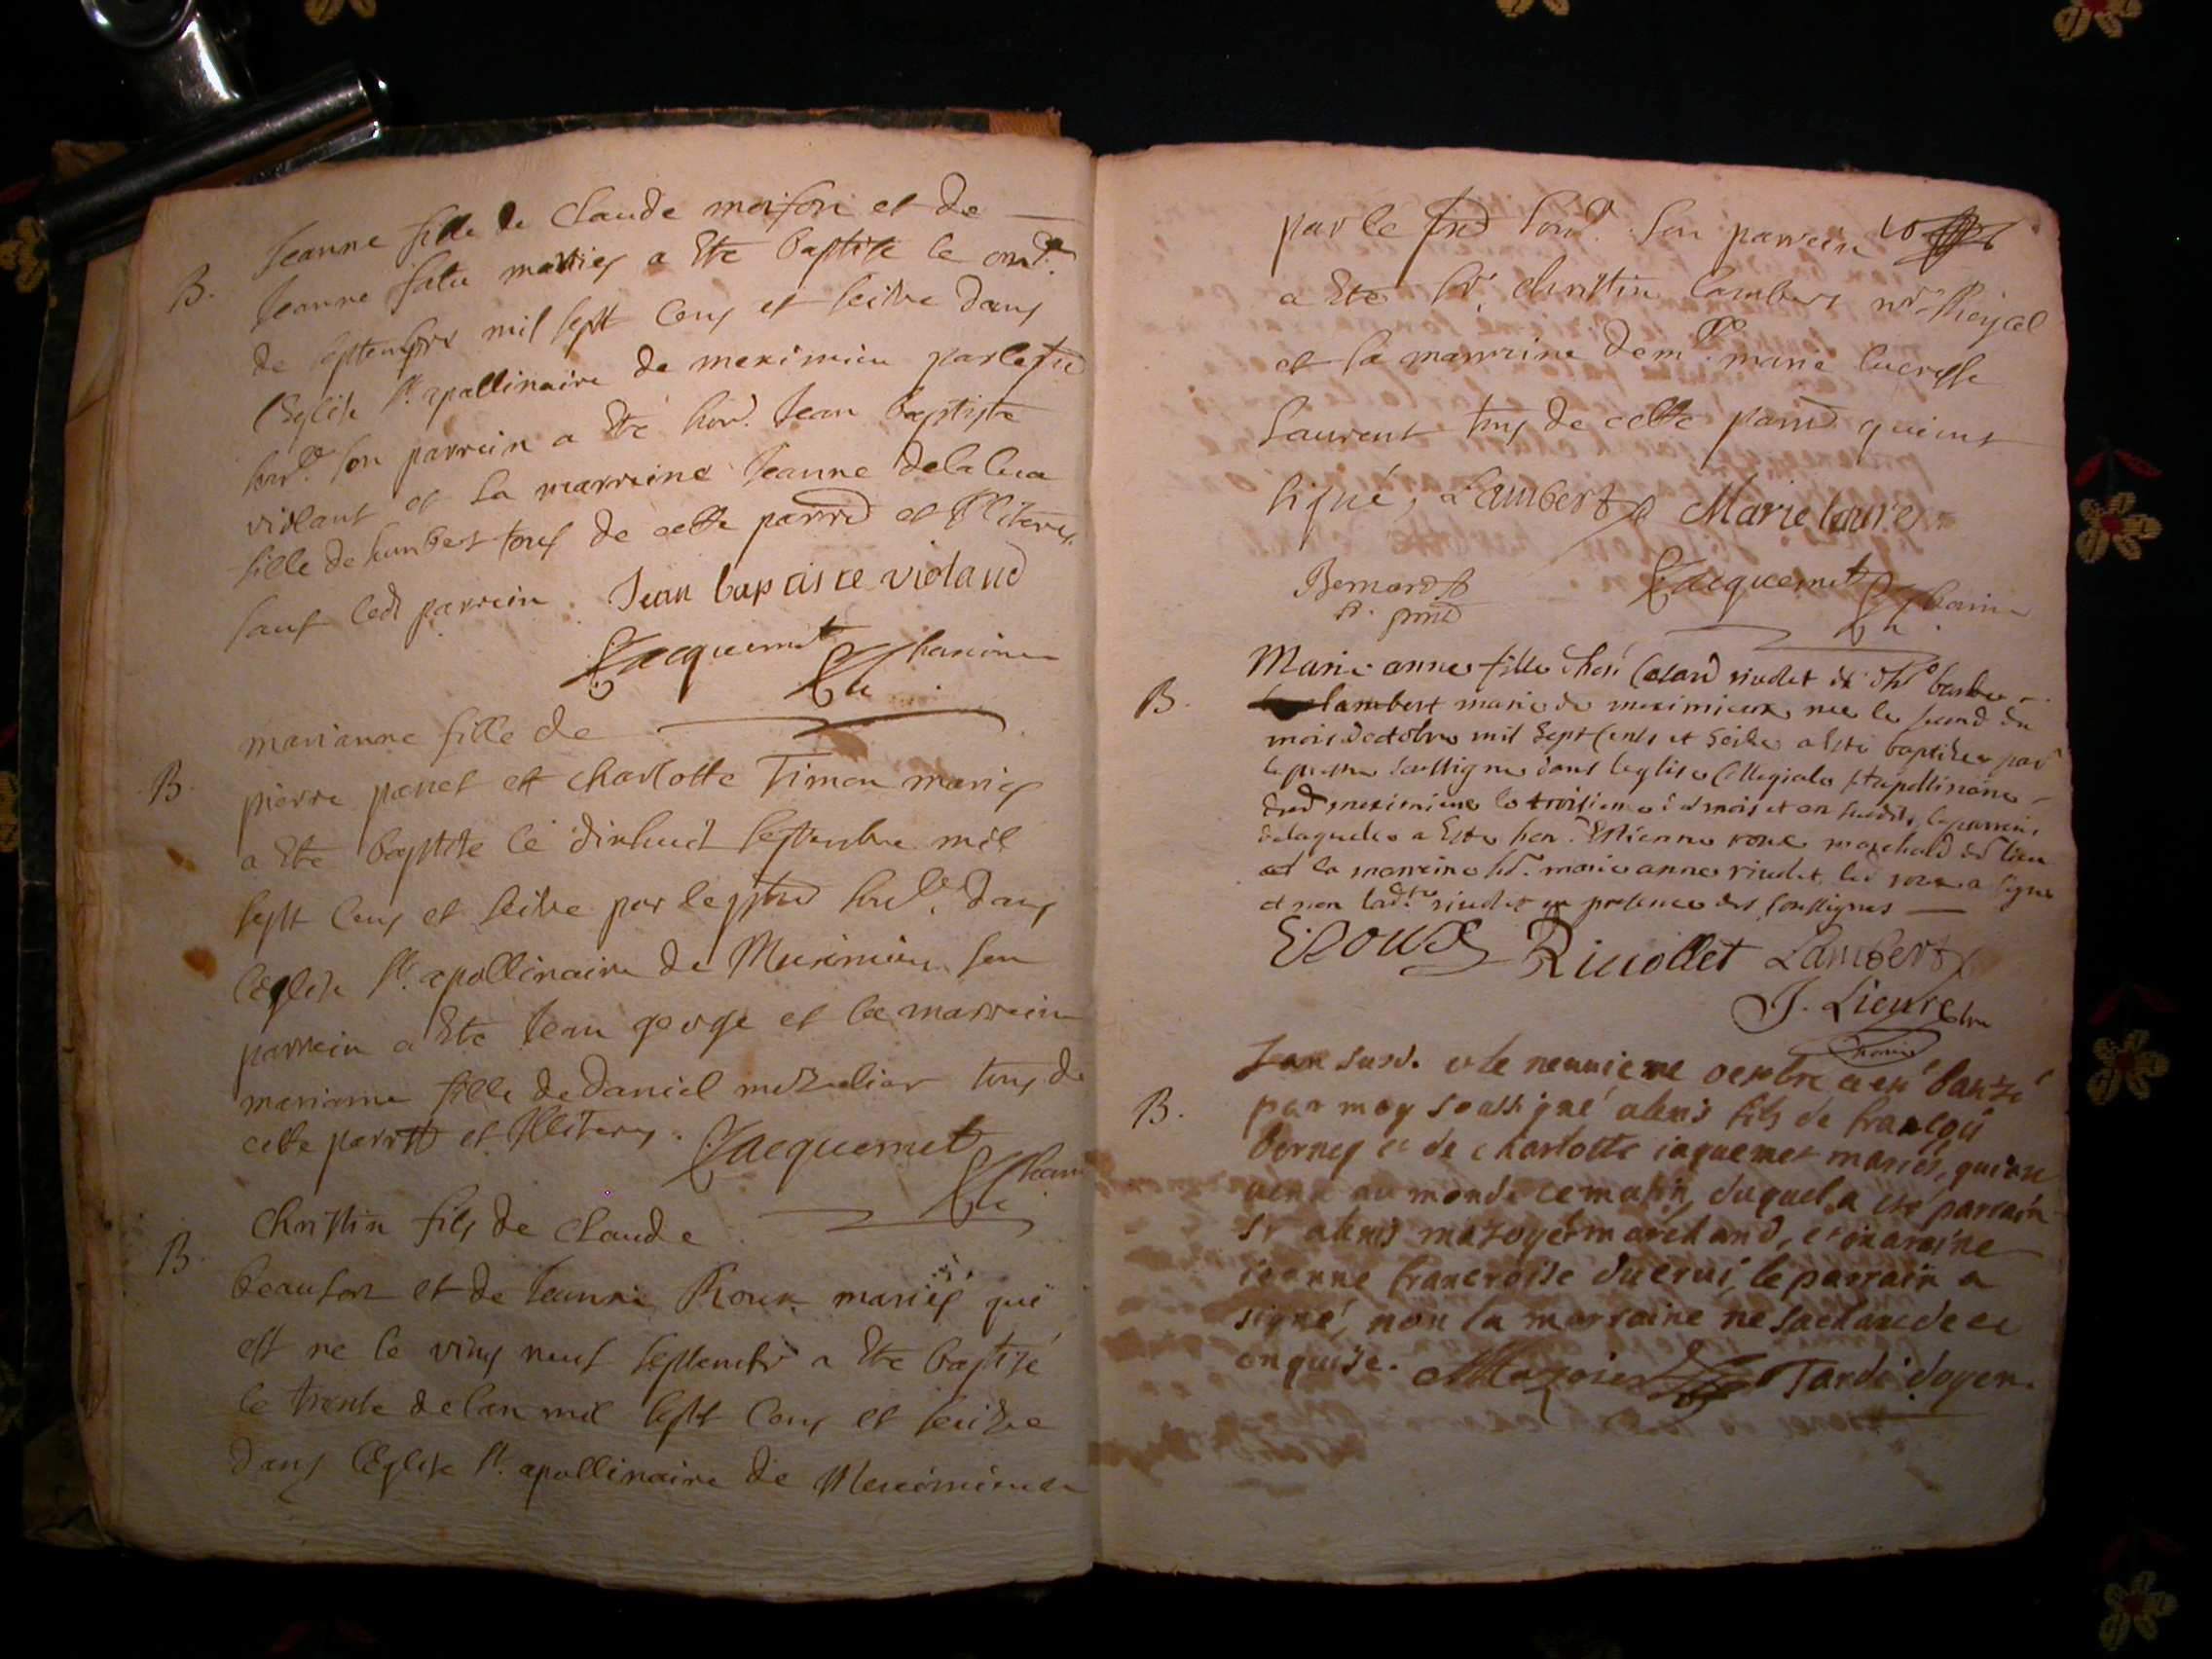 B.
Jeanne fille de Claude moison et de
Jeanne falu mariés a Ete baptise le
de septembre mil sept Cens et seitze dans
l'Eglise St. apollinaire de meximieu par le
son parrein a Ete hon. Jean baptiste
violant et la marreine Jeanne
fille de humbert tous de cette parr et Illiterés
sauf led parrein. Jean baptiste violand
Jacquemet
Chanoine
B.
marianne fille de
pierre panet et charlotte Timon mariés
a Ete baptise le dixhuit septembre mil
sept Cens et seitze par le sous. dans
l'Eglise St. apollinaire de Meximieu son
parrein a Ete Jean george et la marreine
marianne fille de daniel tous de
cette parr et Illiterés. Jacquemet
B.
Christin fils de Claude
beaufort et de Jeanne Roux mariés qui
est ne le vint neuf septembre a Ete baptisé
le trente de l'an mil sept Cens et seitze
dans l'Eglise St. apollinaire de Meximieu
par le sous. son parrein
a Ete Sr. christin Lambert Royal
et la marreine dem.lle marie lucresse
Laurent tous de cette parr qui ont
signé, Lambert Marie laure
Bernard
Jacquemet
B.
Marie anne fille riudet et barbe
lambert marie de meximieux nee le second du
mois doctobre mil Sept Cents et Seize a Esté baptisee par
le prestre soussigne dans leglise Collegiale St apollinaire
dud meximieux le troisieme du mois et an susdits, le parrein
de laquelle a Este hon. Estienne roux marchand du lieu
et la marreine marie anne riudet led roux a signe
et non lad. riudet en presence des soussignes
E. roux Riuollet Lambert
J. Lieure
B.
L'an susd. et le neuuieme octobre a été baptisé
par moy soussigné alexis fils de françois
berney et de charlotte iaquemet mariés, qui est
uenu au monde ce matin, duquel a été parrain
Sr alexis mazoyer marchand, et maraine
ieanne francroise le parrain a
signé, non la marraine ne sachant de ce
enquise. Mazoier Tardi doyen.